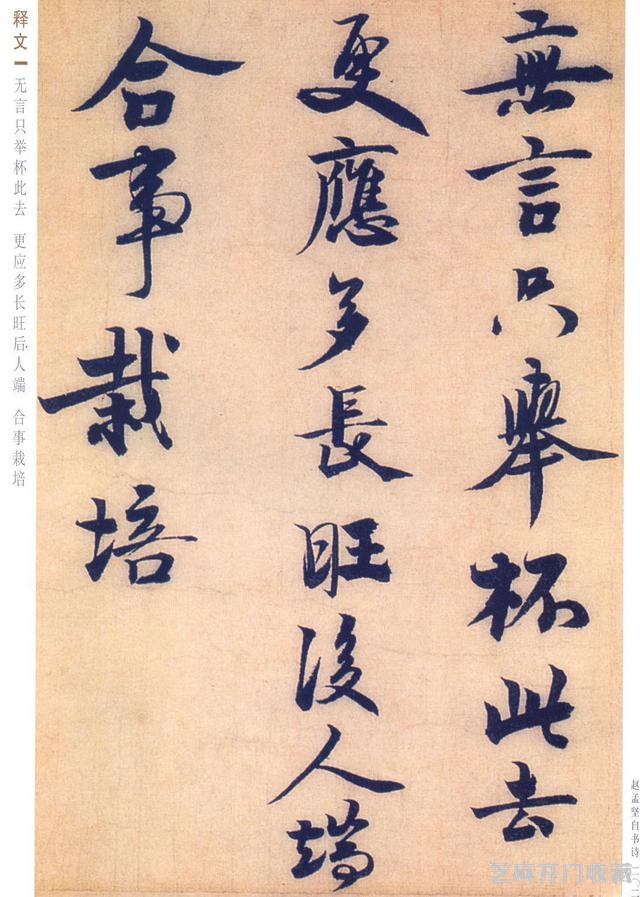 無言只舉杯此去
更應多長旺後人端
合事栽培
释文
无言只举杯此去 更应多长旺后人端 合事栽培
赵孟坚自书诗
艺库开门收藏